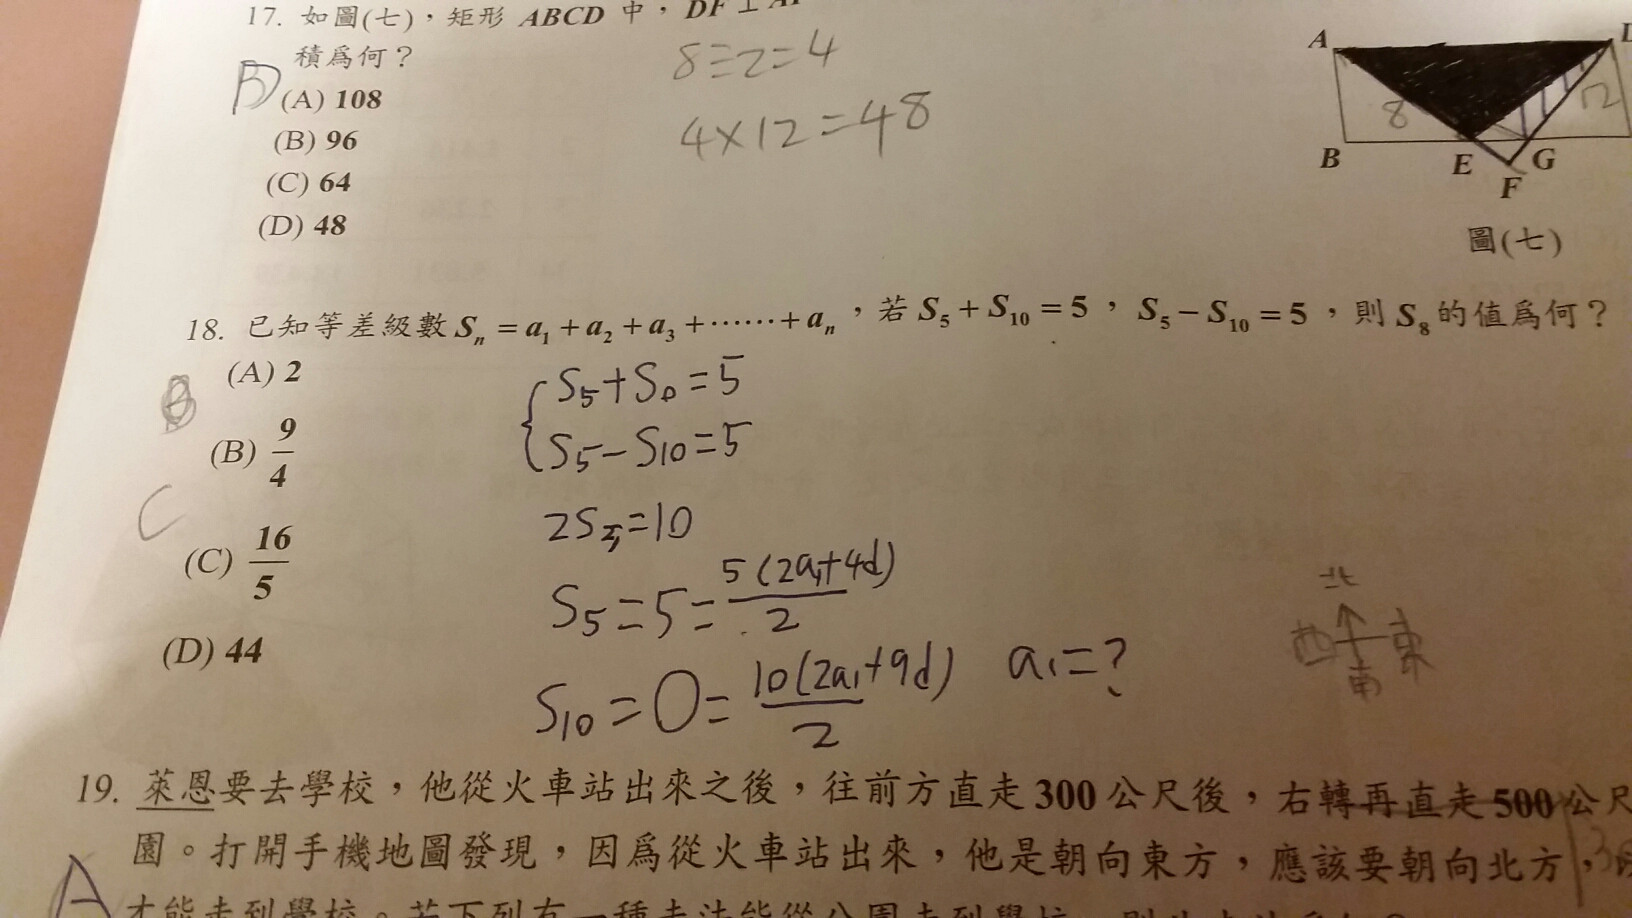 17. 如圖(七)，矩形 ABCD 中，DF⊥AF
積為何？
(A) 108
(B) 96
(C) 64
(D) 48
B
8÷2=4
4×12=48
A
8
12
B
E
G
F
圖(七)
18. 已知等差級數 Sn = a1 + a2 + a3 + ⋯⋯ + an，若 S5 + S10 = 5，S5 − S10 = 5，則 S8 的值為何？
(A) 2
(B) 9/4
(C) 16/5
(D) 44
C
S5+S10=5
S5−S10=5
2S5=10
S5=5=5(2a1+4d)/2
S10=0=10(2a1+9d)/2 a1=?
北
西 東
南
19. 萊恩要去學校，他從火車站出來之後，往前方直走 300 公尺後，右轉再直走 500 公尺
園。打開手機地圖發現，因為從火車站出來，他是朝向東方，應該要朝向北方，
A
才能走到學校。若下列有一種走法能從公園走到學校，則